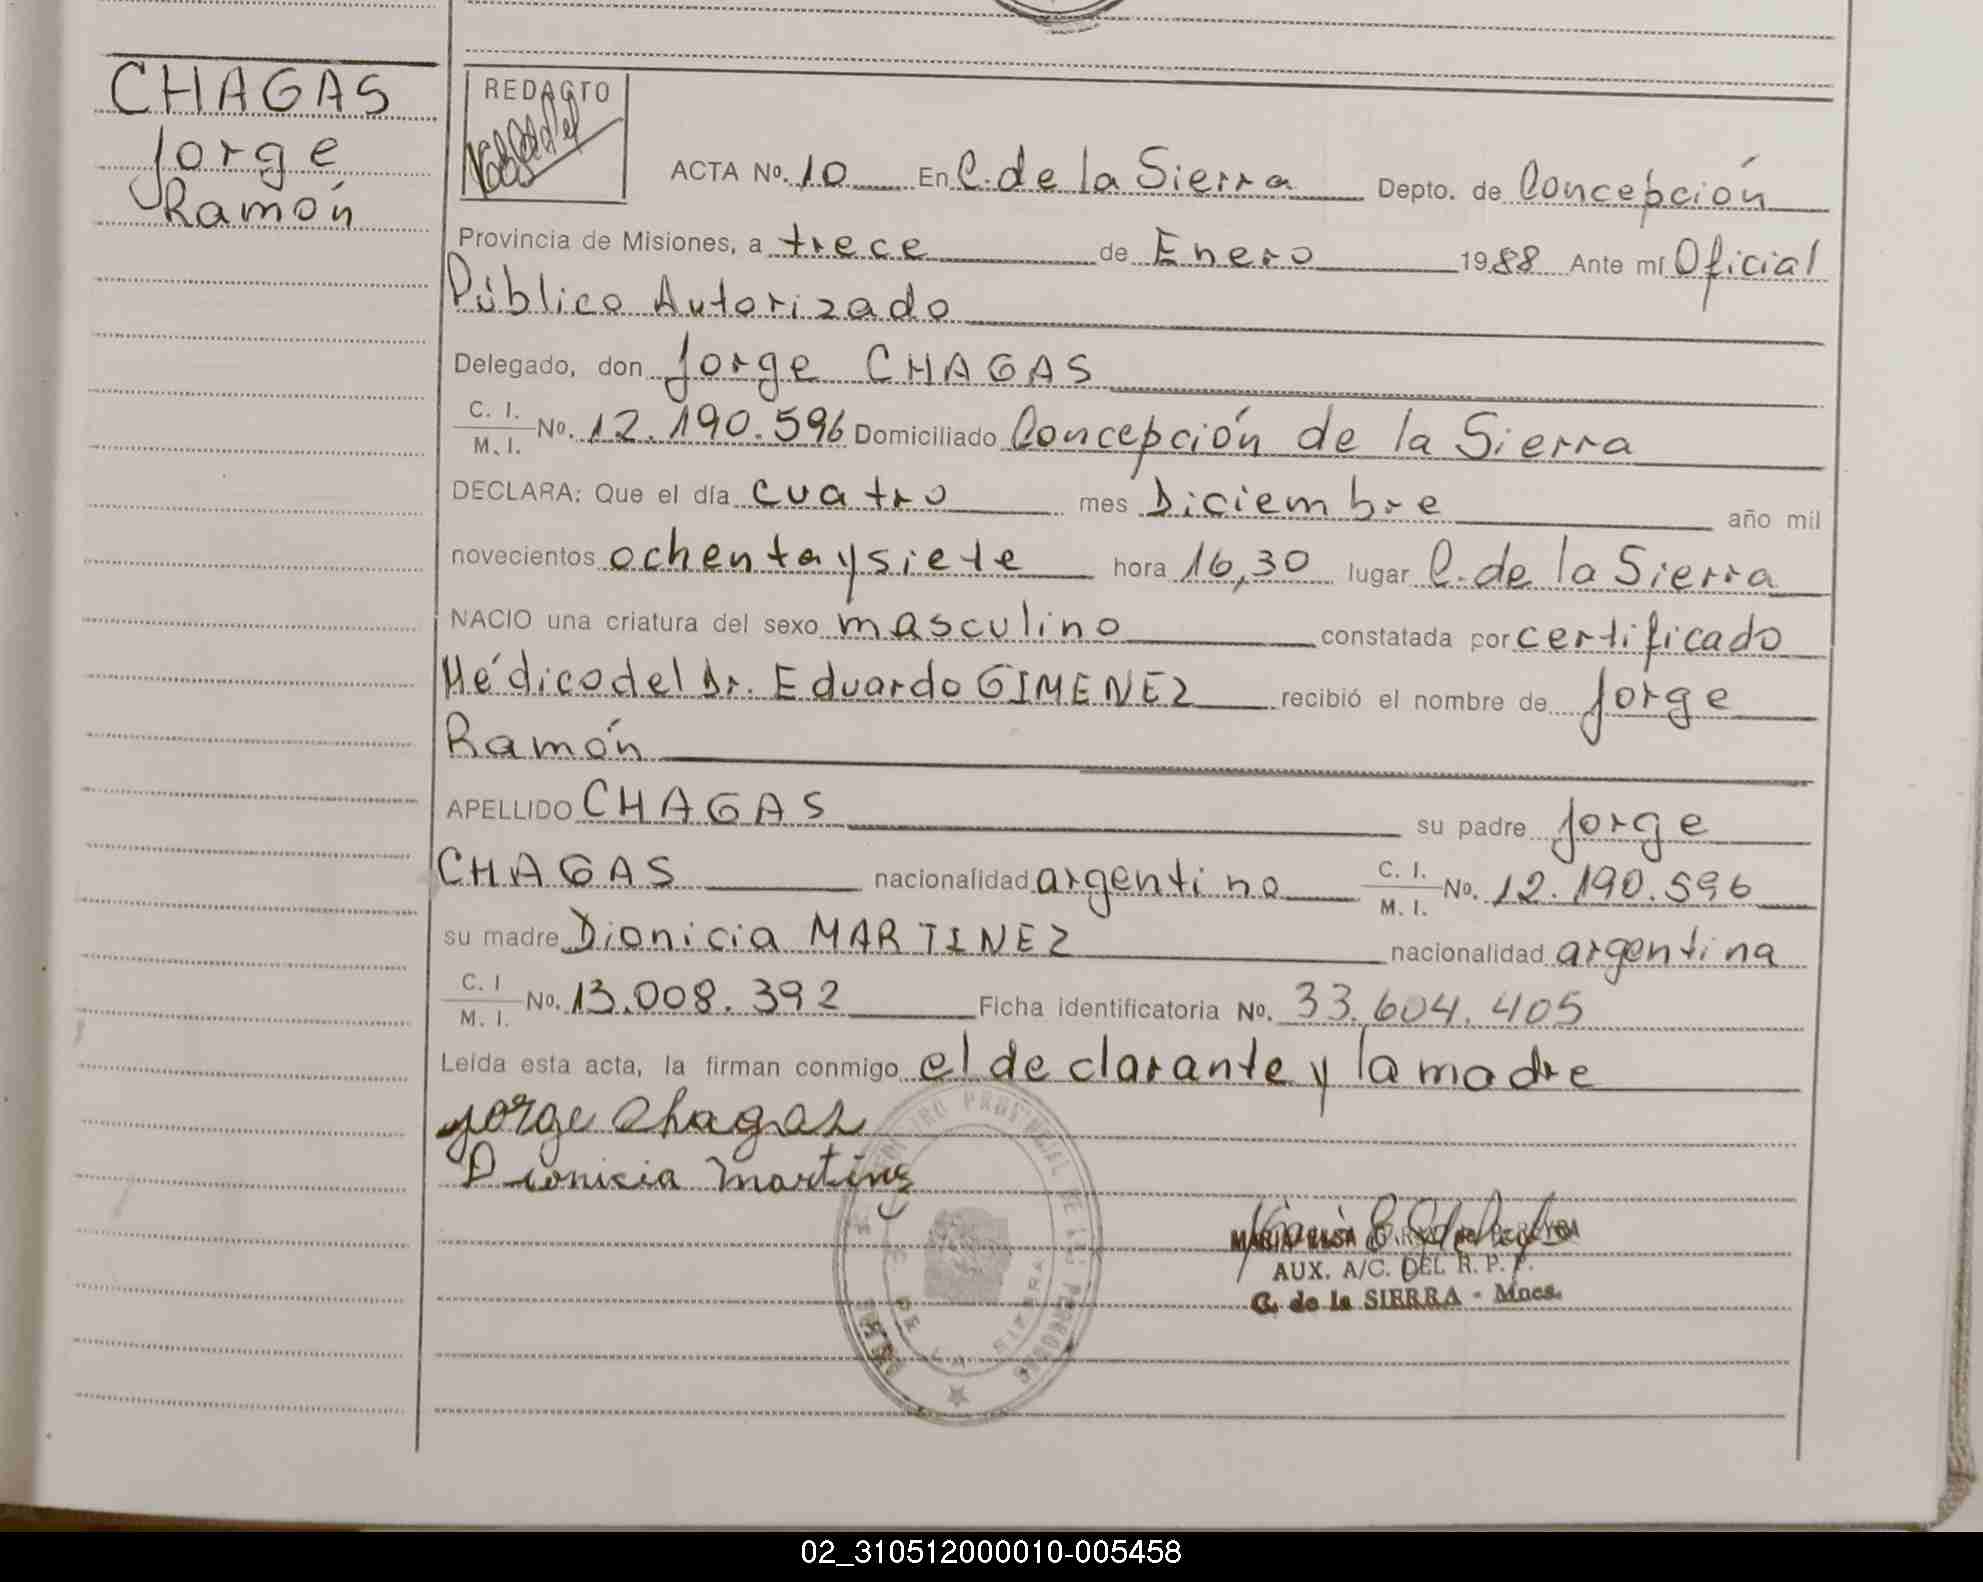 CHAGAS
Jorge
Ramón
REDACTO
ACTA No. 10 En C. de la Sierra Depto. de Concepción
Provincia de Misiones, a trece de Enero 1988 Ante mí Oficial
Público Autorizado
Delegado, don Jorge CHAGAS
C. I.
M. I. No. 12.190.596 Domiciliado Concepción de la Sierra
DECLARA: Que el día cuatro mes Diciembre año mil
novecientos ochenta y siete hora 16,30 lugar C. de la Sierra
NACIO una criatura del sexo masculino constatada por certificado
Médico del Dr. Eduardo GIMENEZ recibió el nombre de Jorge
Ramón
APELLIDO CHAGAS su padre Jorge
CHAGAS nacionalidad argentino C. I. M. I. No. 12.190.596
su madre Dionicia MARTINEZ nacionalidad argentina
C. I
M. I. No. 13.008.392 Ficha identificatoria No. 33.604.405
Leída esta acta, la firman conmigo el declarante y la madre
Jorge Chagas
Dionicia Martinez
MARIA ELSA
AUX. A/C. DEL R. P. P.
C. de la SIERRA - Mnes.
PROVINCIAL DE LAS PERSONAS
DE LA SIERRA
02_310512000010-005458